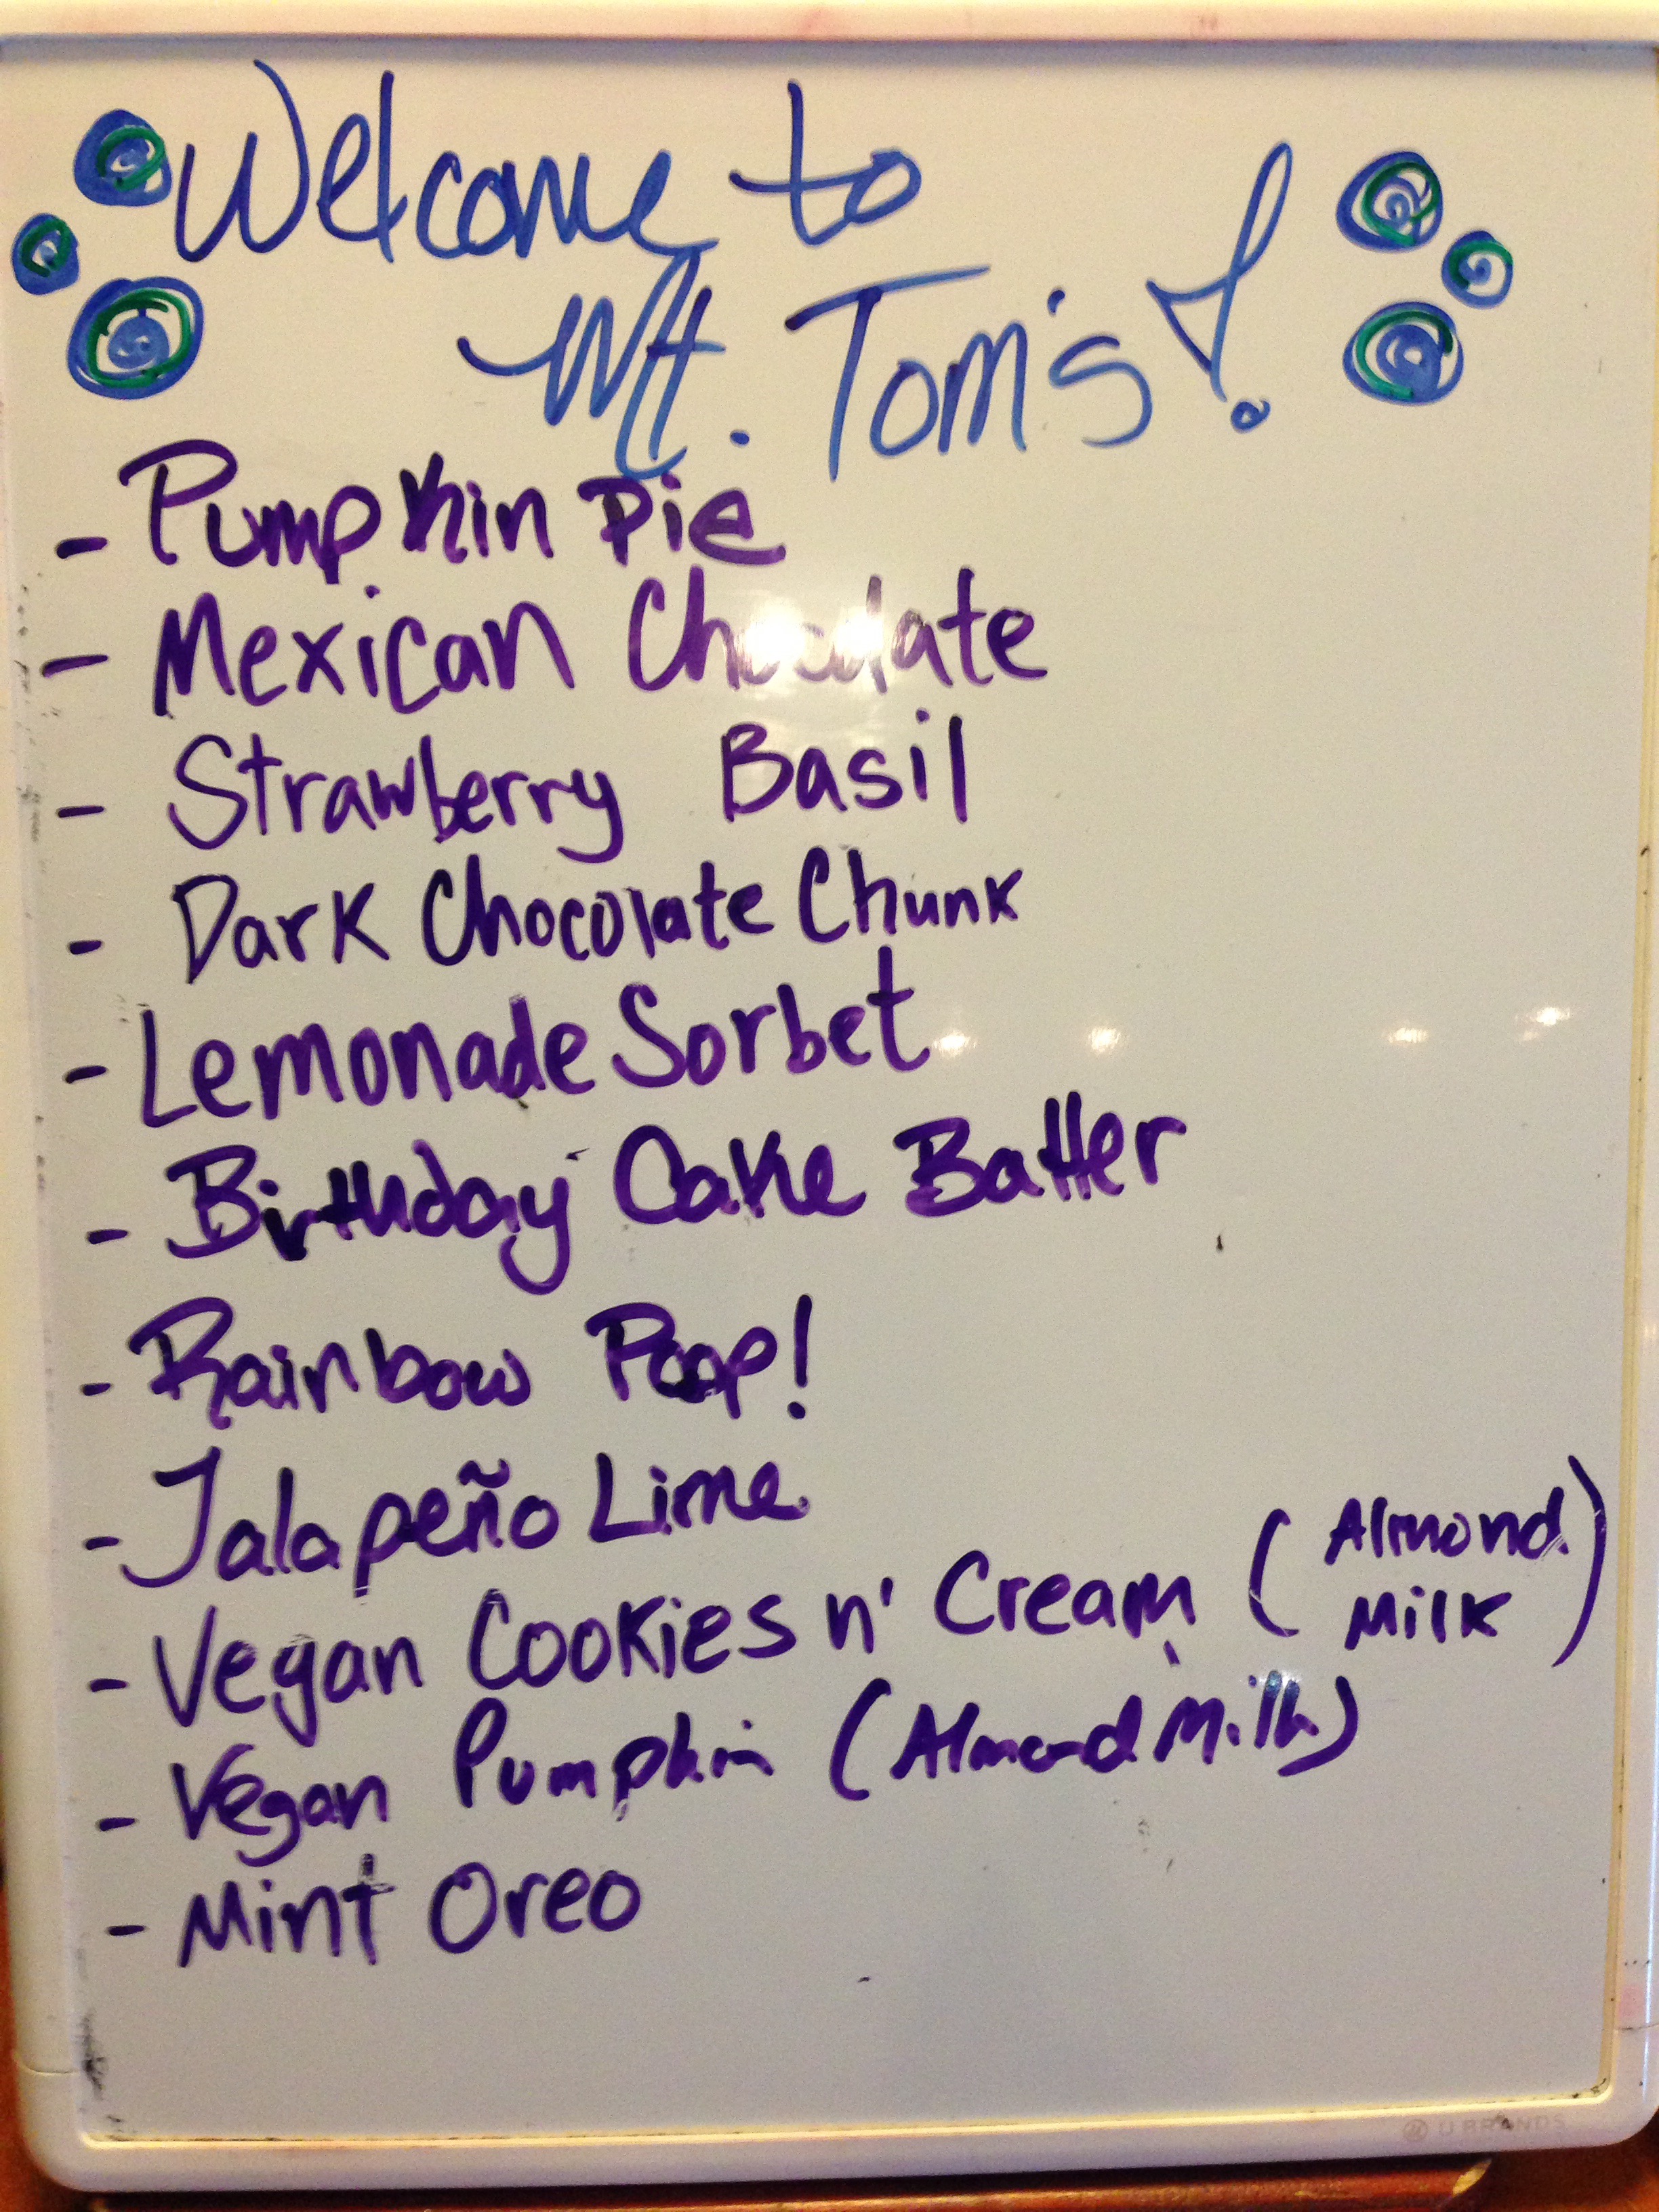 Welcome to
Mt. Tom's!
- Pumpkin Pie
- Mexican Chocolate
- Strawberry Basil
- Dark Chocolate Chunk
- Lemonade Sorbet
- Birthday Cake Batter
- Rainbow Poop!
- Jalapeño Lime
- Vegan Cookies n' Cream (Almond
Milk)
- Vegan Pumpkin (Almond Milk)
- Mint Oreo
U BRANDS